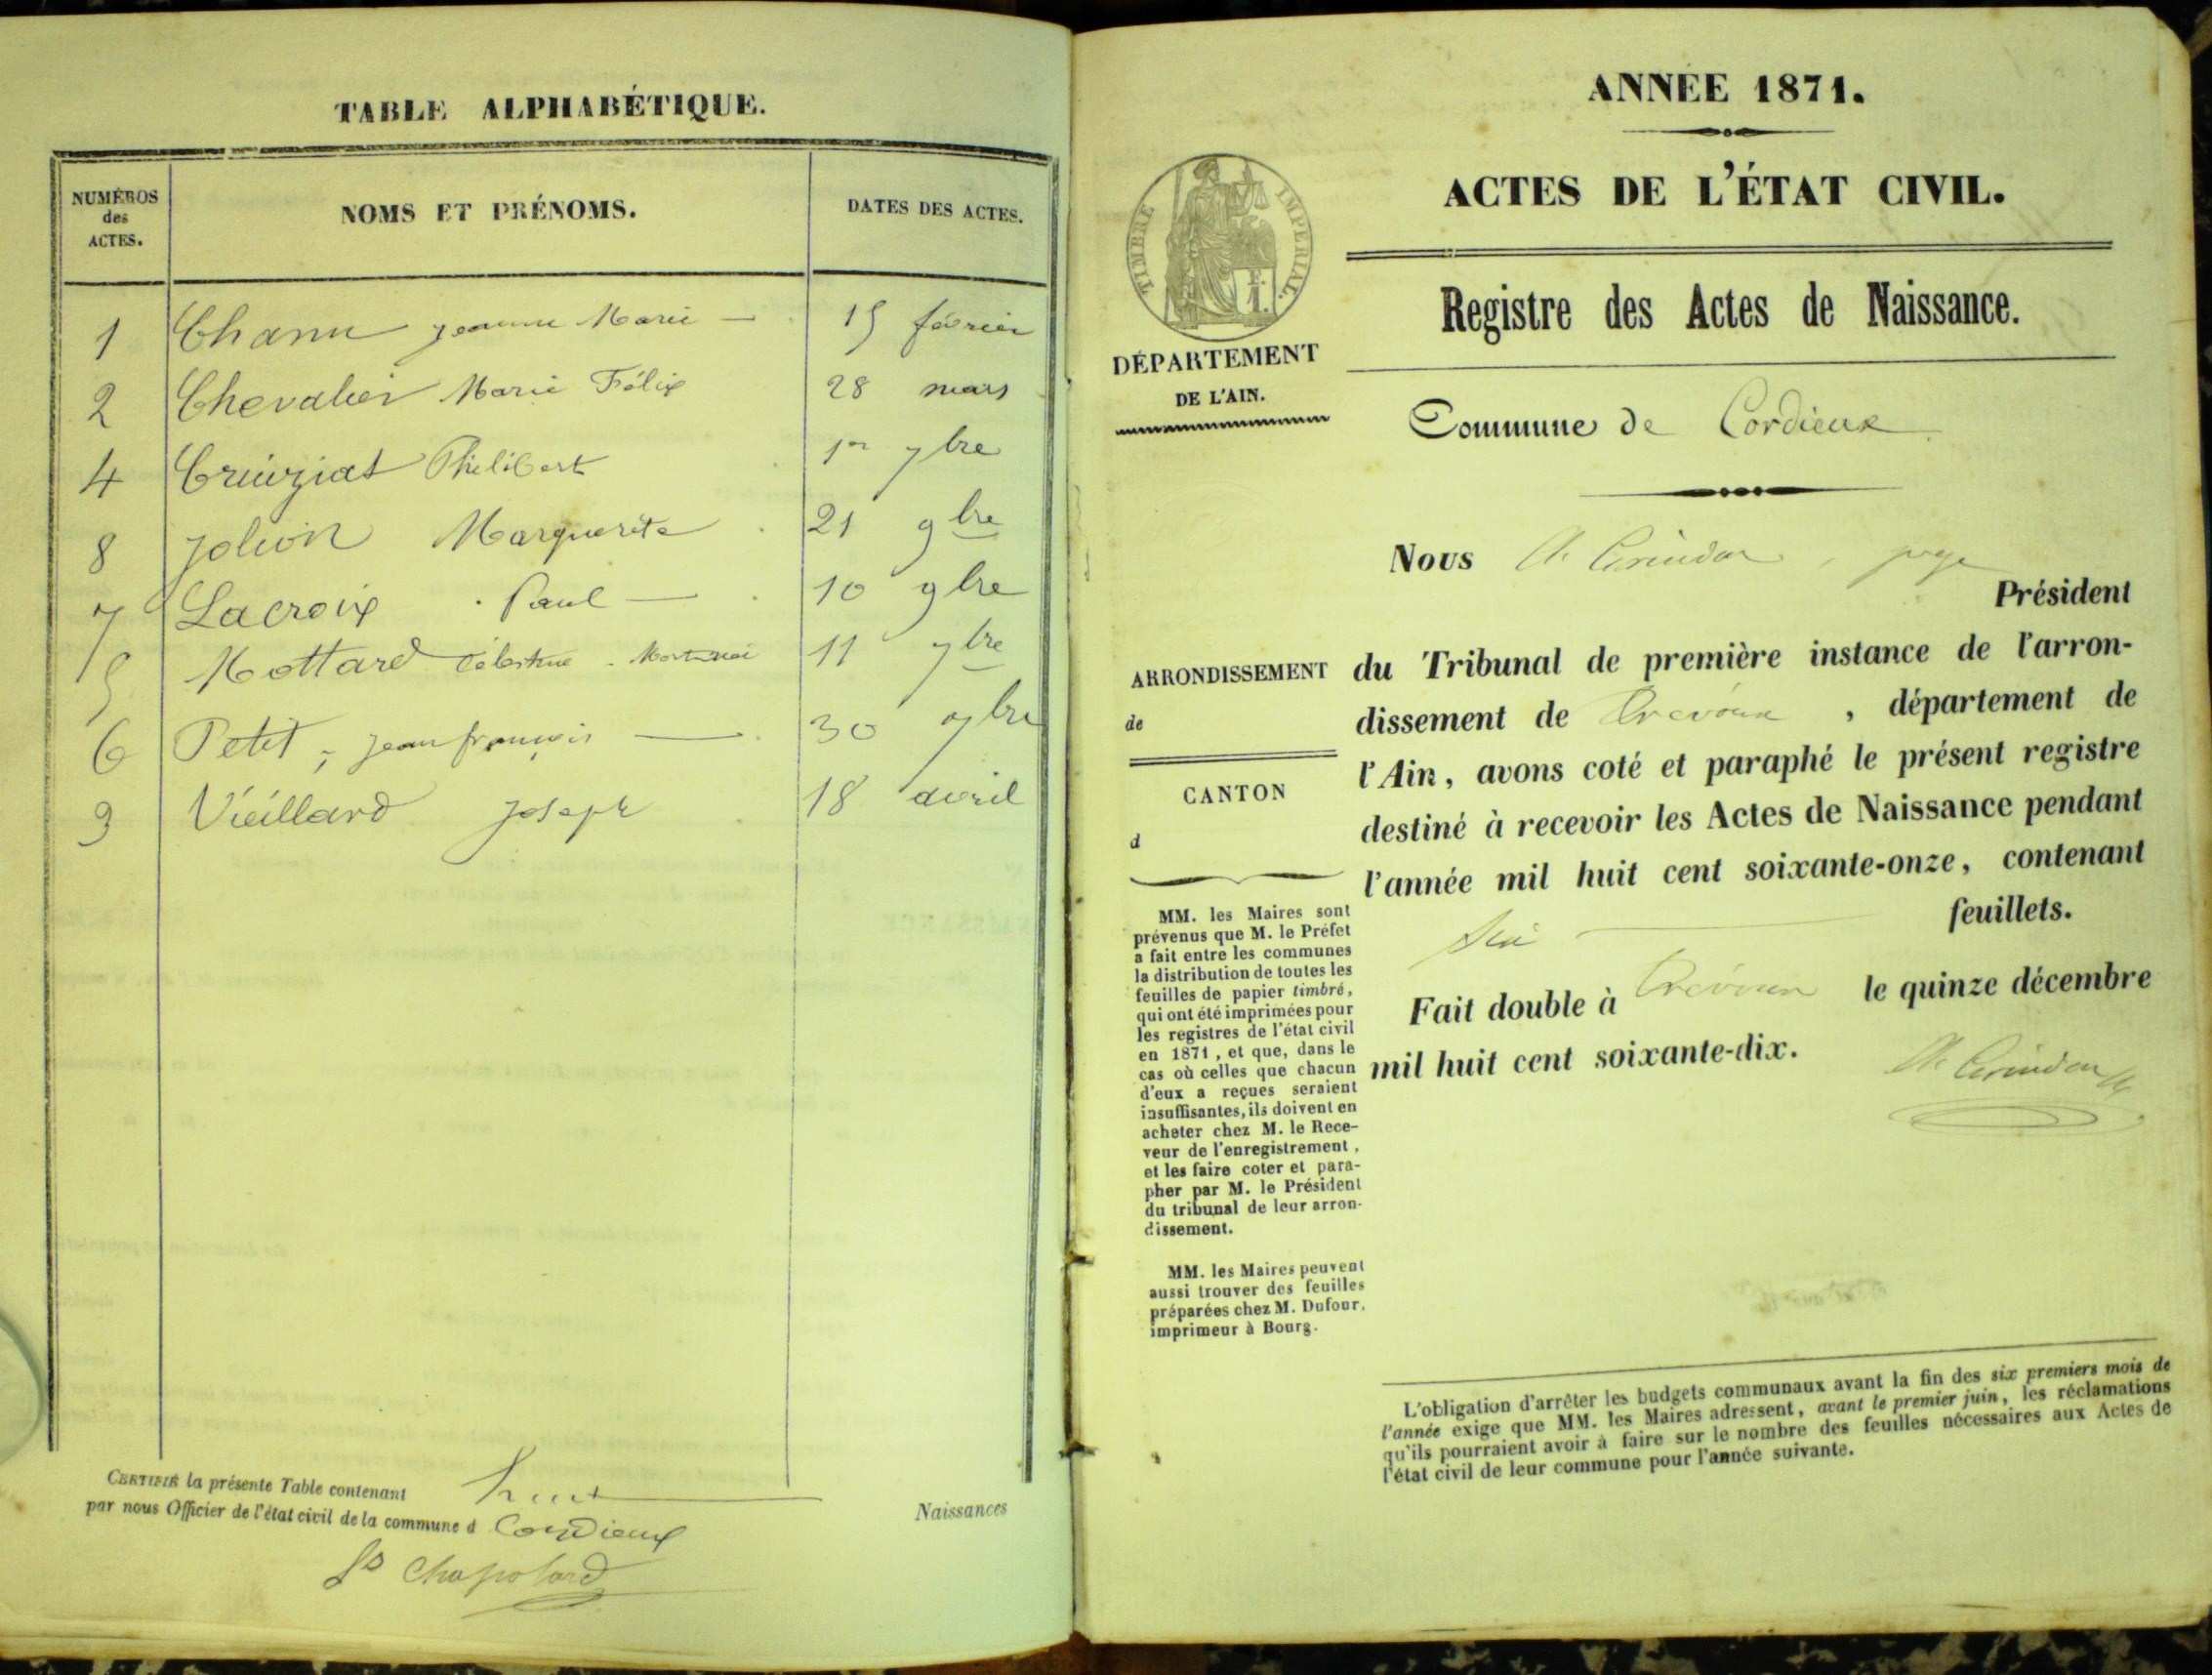 TABLE ALPHABÉTIQUE.
NUMÉROS
des
ACTES.
NOMS ET PRÉNOMS.
DATES DES ACTES.
1 Chanu jeanne Marie — 15 février
2 Chevalier Marie Félix 28 mars
4 Cruiziat Philibert 1er 7bre
8 Jolivon Marguerite 21 9bre
7 Lacroix Paul — 10 9bre
5 Mottard Célestine 11 7bre
6 Petit, jean françois — 30 7bre
3 Vieillard joseph 18 avril
CERTIFIÉ la présente Table contenant huit Naissances
par nous Officier de l'état civil de la commune d Cordieux
Chapolard
ANNÉE 1871.
ACTES DE L'ÉTAT CIVIL.
TIMBRE IMPERIAL.
DÉPARTEMENT
DE L'AIN.
Registre des Actes de Naissance.
Commune de Cordieux
Nous juge
Président
ARRONDISSEMENT
de
CANTON
d
du Tribunal de première instance de l'arron-
dissement de Trévoux, département de
l'Ain, avons coté et paraphé le présent registre
destiné à recevoir les Actes de Naissance pendant
l'année mil huit cent soixante-onze, contenant
six feuillets.
Fait double à Trévoux le quinze décembre
mil huit cent soixante-dix.
MM. les Maires sont
prévenus que M. le Préfet
a fait entre les communes
la distribution de toutes les
feuilles de papier timbré,
qui ont été imprimées pour
les registres de l'état civil
en 1871, et que, dans le
cas où celles que chacun
d'eux a reçues seraient
insuffisantes, ils doivent en
acheter chez M. le Rece-
veur de l'enregistrement,
et les faire coter et para-
pher par M. le Président
du tribunal de leur arron-
dissement.
MM. les Maires peuvent
aussi trouver des feuilles
préparées chez M. Dufour,
imprimeur à Bourg.
L'obligation d'arrêter les budgets communaux avant la fin des six premiers mois de
l'année exige que MM. les Maires adressent, avant le premier juin, les réclamations
qu'ils pourraient avoir à faire sur le nombre des feuilles nécessaires aux Actes de
l'état civil de leur commune pour l'année suivante.